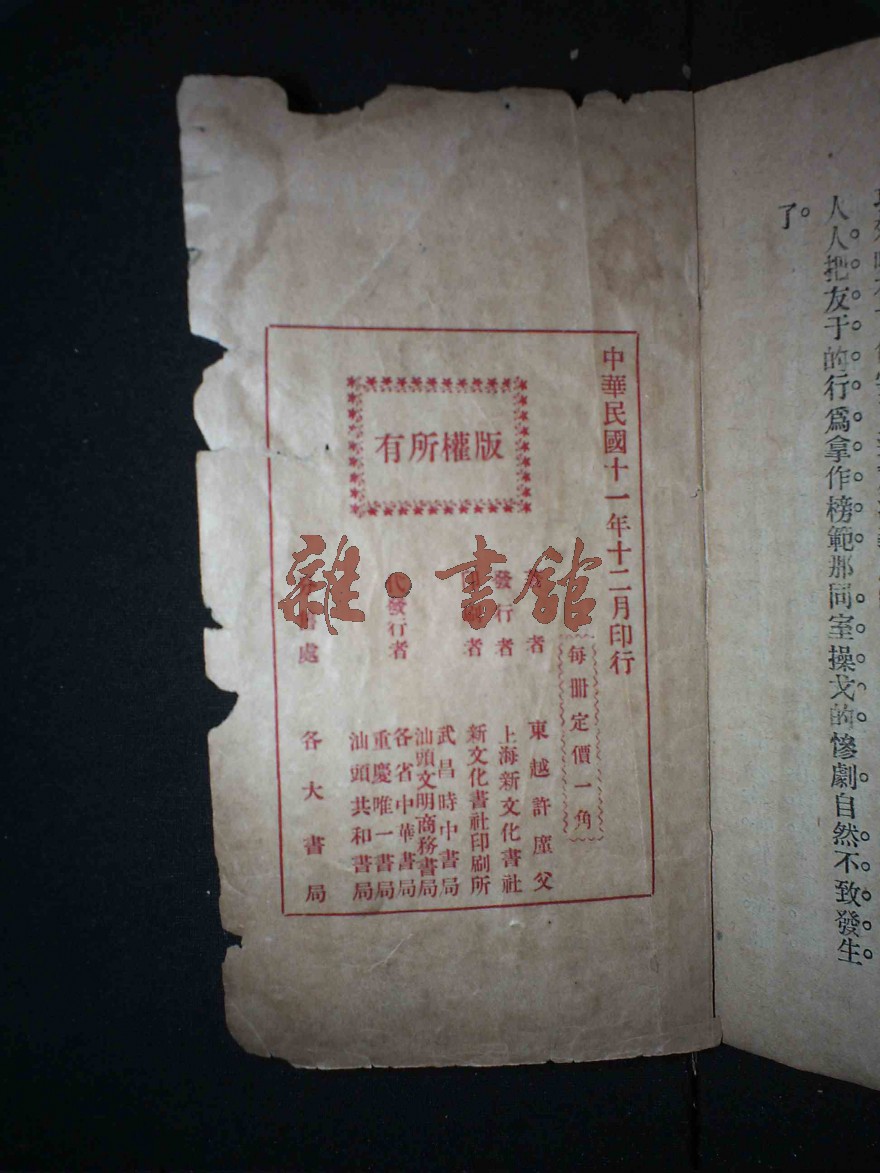 人人把友于的行爲拿作榜範那同室操戈的慘劇自然不致發生
了。
中華民國十一年十二月印行
每册定價一角
者 東越許廑父
發行者 上海新文化書社
者 新文化書社印刷所
代發行者
武昌時中書局
汕頭文明商務書局
各省中華書局
重慶唯一書局
汕頭共和書局
處 各大書局
版權所有
雜·書館